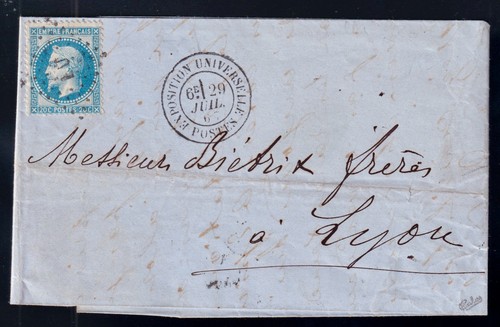 EMPIRE FRANÇAIS
20C POSTES 20C
EXPOSITION UNIVERSELLE
6E 29
JUIL.
POSTES
Messieurs Biétrix frères
à Lyon